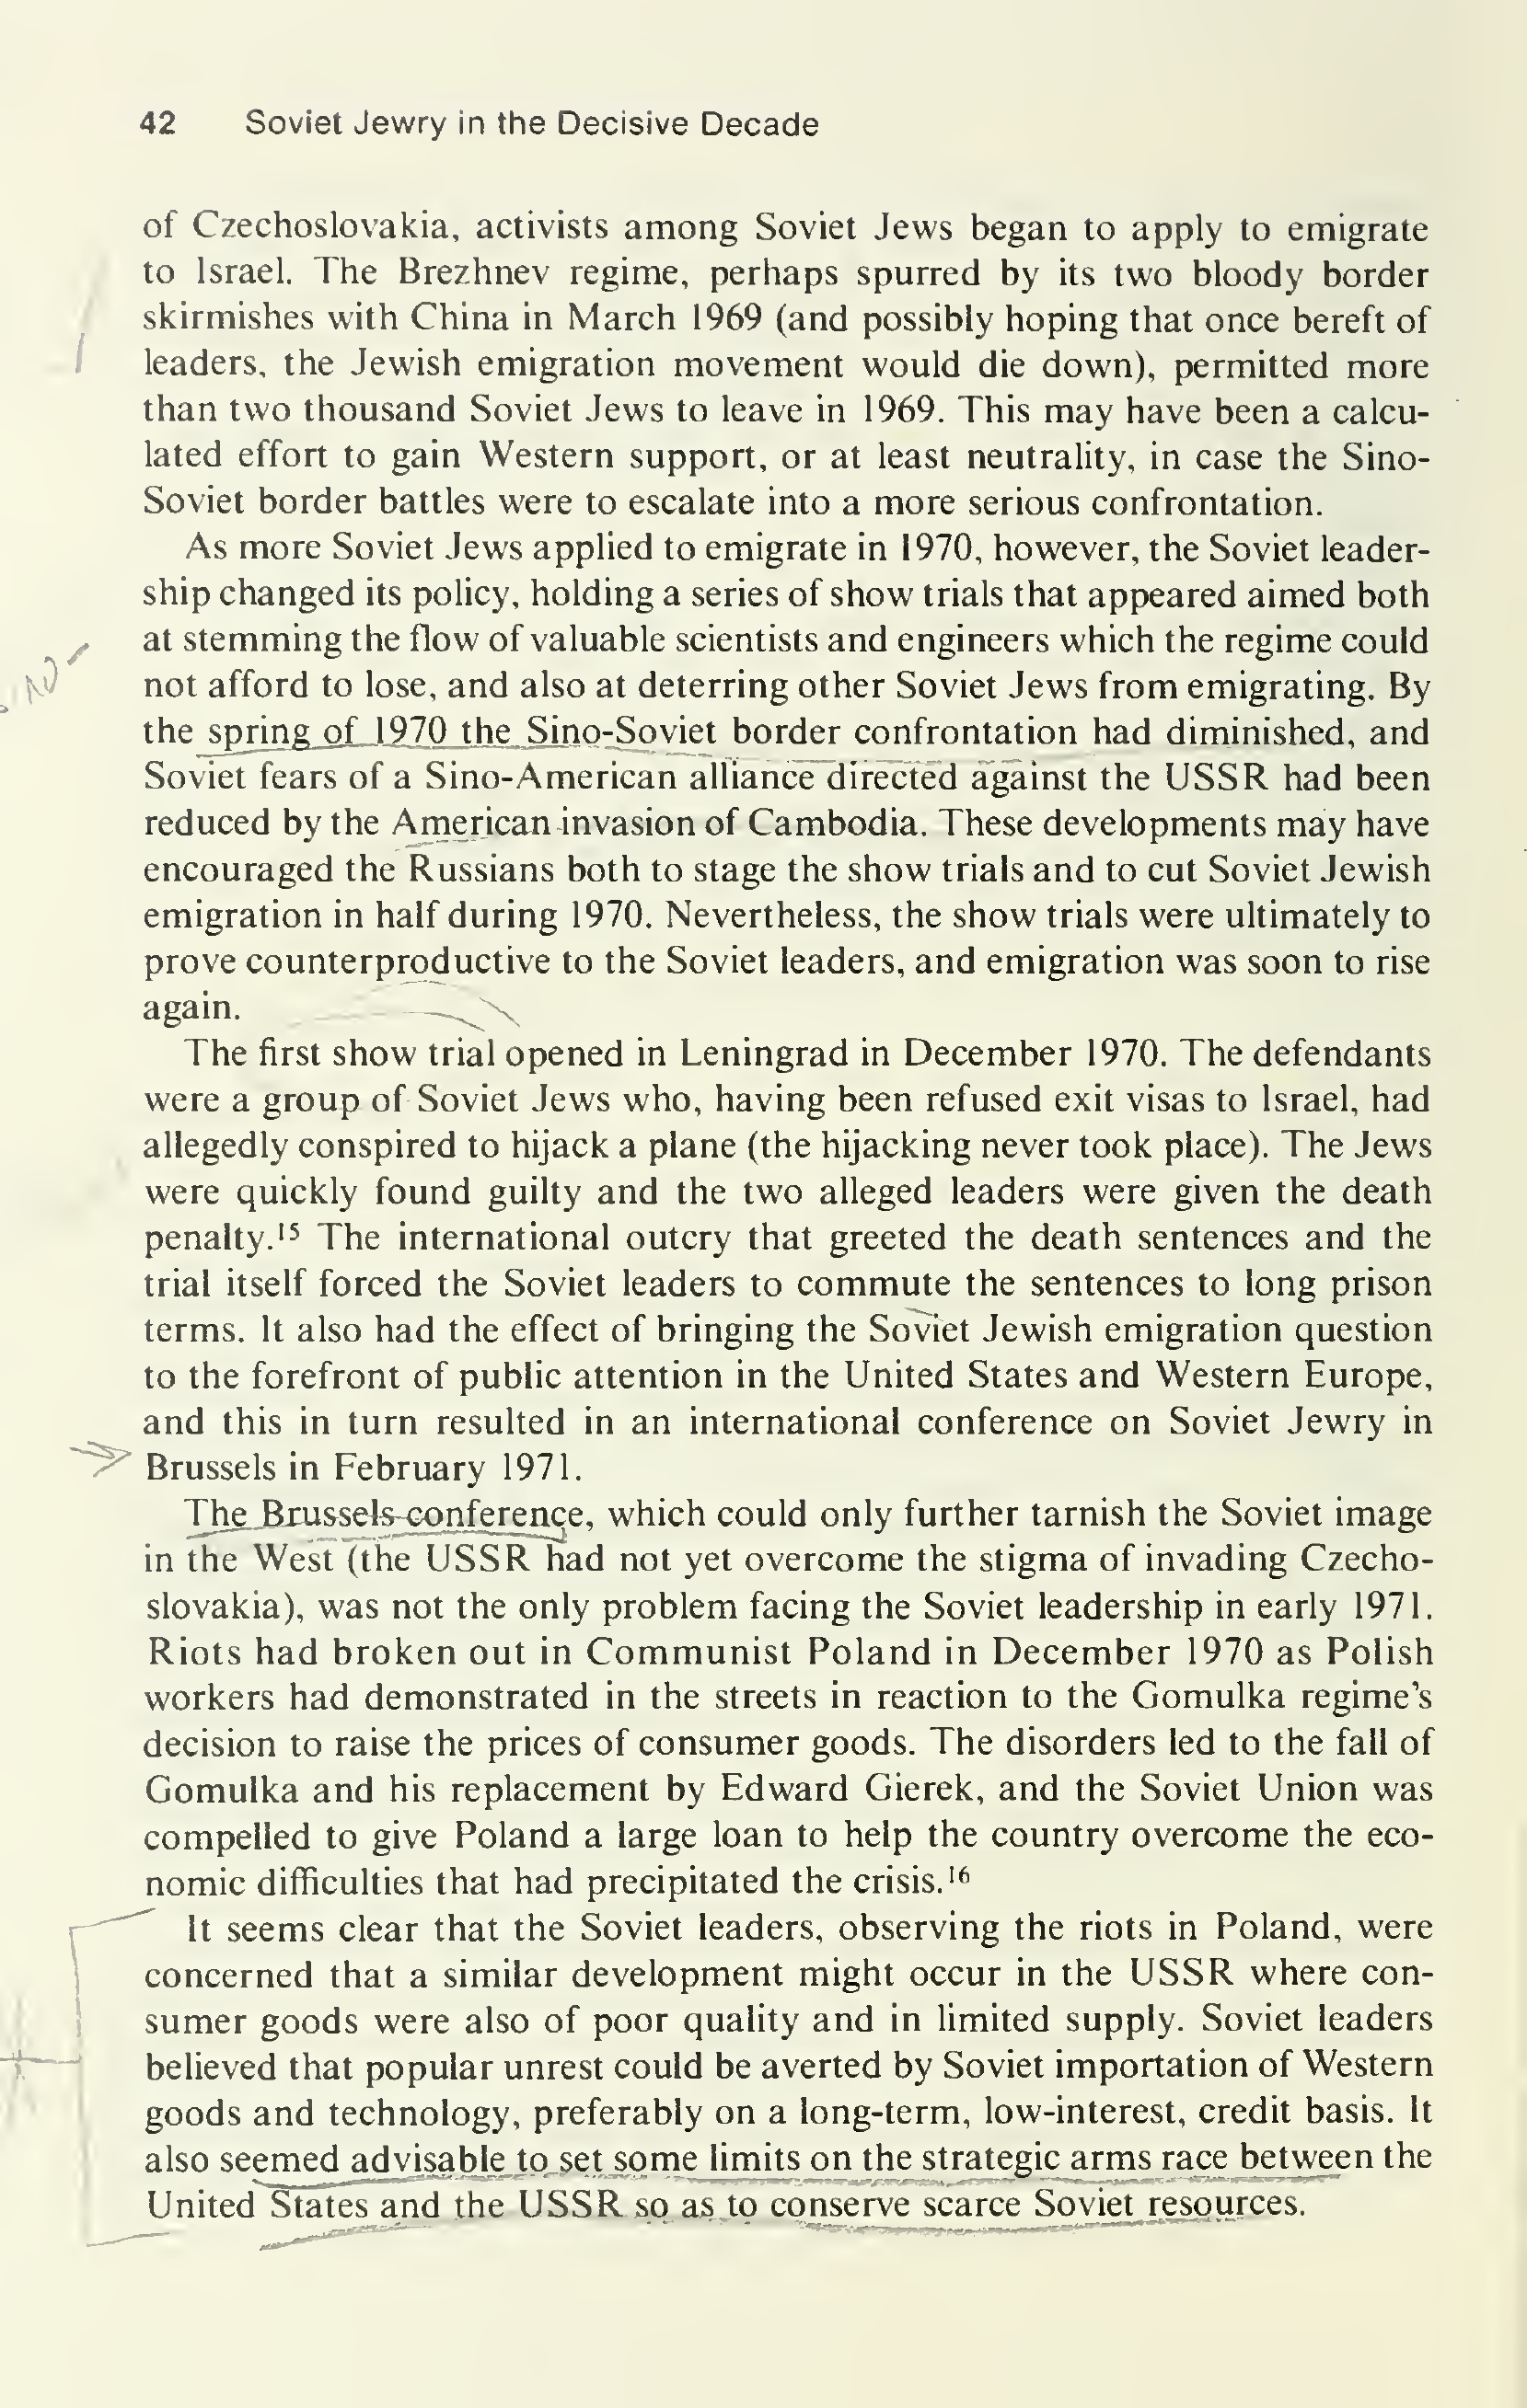 42 Soviet Jewry in the Decisive Decade
of Czechoslovakia, activists among Soviet Jews began to apply to emigrate
to Israel. The Brezhnev regime, perhaps spurred by its two bloody border
skirmishes with China in March 1969 (and possibly hoping that once bereft of
leaders, the Jewish emigration movement would die down), permitted more
than two thousand Soviet Jews to leave in 1969. This may have been a calcu-
lated effort to gain Western support, or at least neutrality, in case the Sino-
Soviet border battles were to escalate into a more serious confrontation.
As more Soviet Jews applied to emigrate in 1970, however, the Soviet leader-
ship changed its policy, holding a series of show trials that appeared aimed both
at stemming the flow of valuable scientists and engineers which the regime could
not afford to lose, and also at deterring other Soviet Jews from emigrating. By
the spring of 1970 the Sino-Soviet border confrontation had diminished, and
Soviet fears of a Sino-American alliance directed against the USSR had been
reduced by the American invasion of Cambodia. These developments may have
encouraged the Russians both to stage the show trials and to cut Soviet Jewish
emigration in half during 1970. Nevertheless, the show trials were ultimately to
prove counterproductive to the Soviet leaders, and emigration was soon to rise
again.
The first show trial opened in Leningrad in December 1970. The defendants
were a group of Soviet Jews who, having been refused exit visas to Israel, had
allegedly conspired to hijack a plane (the hijacking never took place). The Jews
were quickly found guilty and the two alleged leaders were given the death
penalty.¹⁵ The international outcry that greeted the death sentences and the
trial itself forced the Soviet leaders to commute the sentences to long prison
terms. It also had the effect of bringing the Soviet Jewish emigration question
to the forefront of public attention in the United States and Western Europe,
and this in turn resulted in an international conference on Soviet Jewry in
Brussels in February 1971.
The Brussels conference, which could only further tarnish the Soviet image
in the West (the USSR had not yet overcome the stigma of invading Czecho-
slovakia), was not the only problem facing the Soviet leadership in early 1971.
Riots had broken out in Communist Poland in December 1970 as Polish
workers had demonstrated in the streets in reaction to the Gomulka regime's
decision to raise the prices of consumer goods. The disorders led to the fall of
Gomulka and his replacement by Edward Gierek, and the Soviet Union was
compelled to give Poland a large loan to help the country overcome the eco-
nomic difficulties that had precipitated the crisis.¹⁶
It seems clear that the Soviet leaders, observing the riots in Poland, were
concerned that a similar development might occur in the USSR where con-
sumer goods were also of poor quality and in limited supply. Soviet leaders
believed that popular unrest could be averted by Soviet importation of Western
goods and technology, preferably on a long-term, low-interest, credit basis. It
also seemed advisable to set some limits on the strategic arms race between the
United States and the USSR so as to conserve scarce Soviet resources.